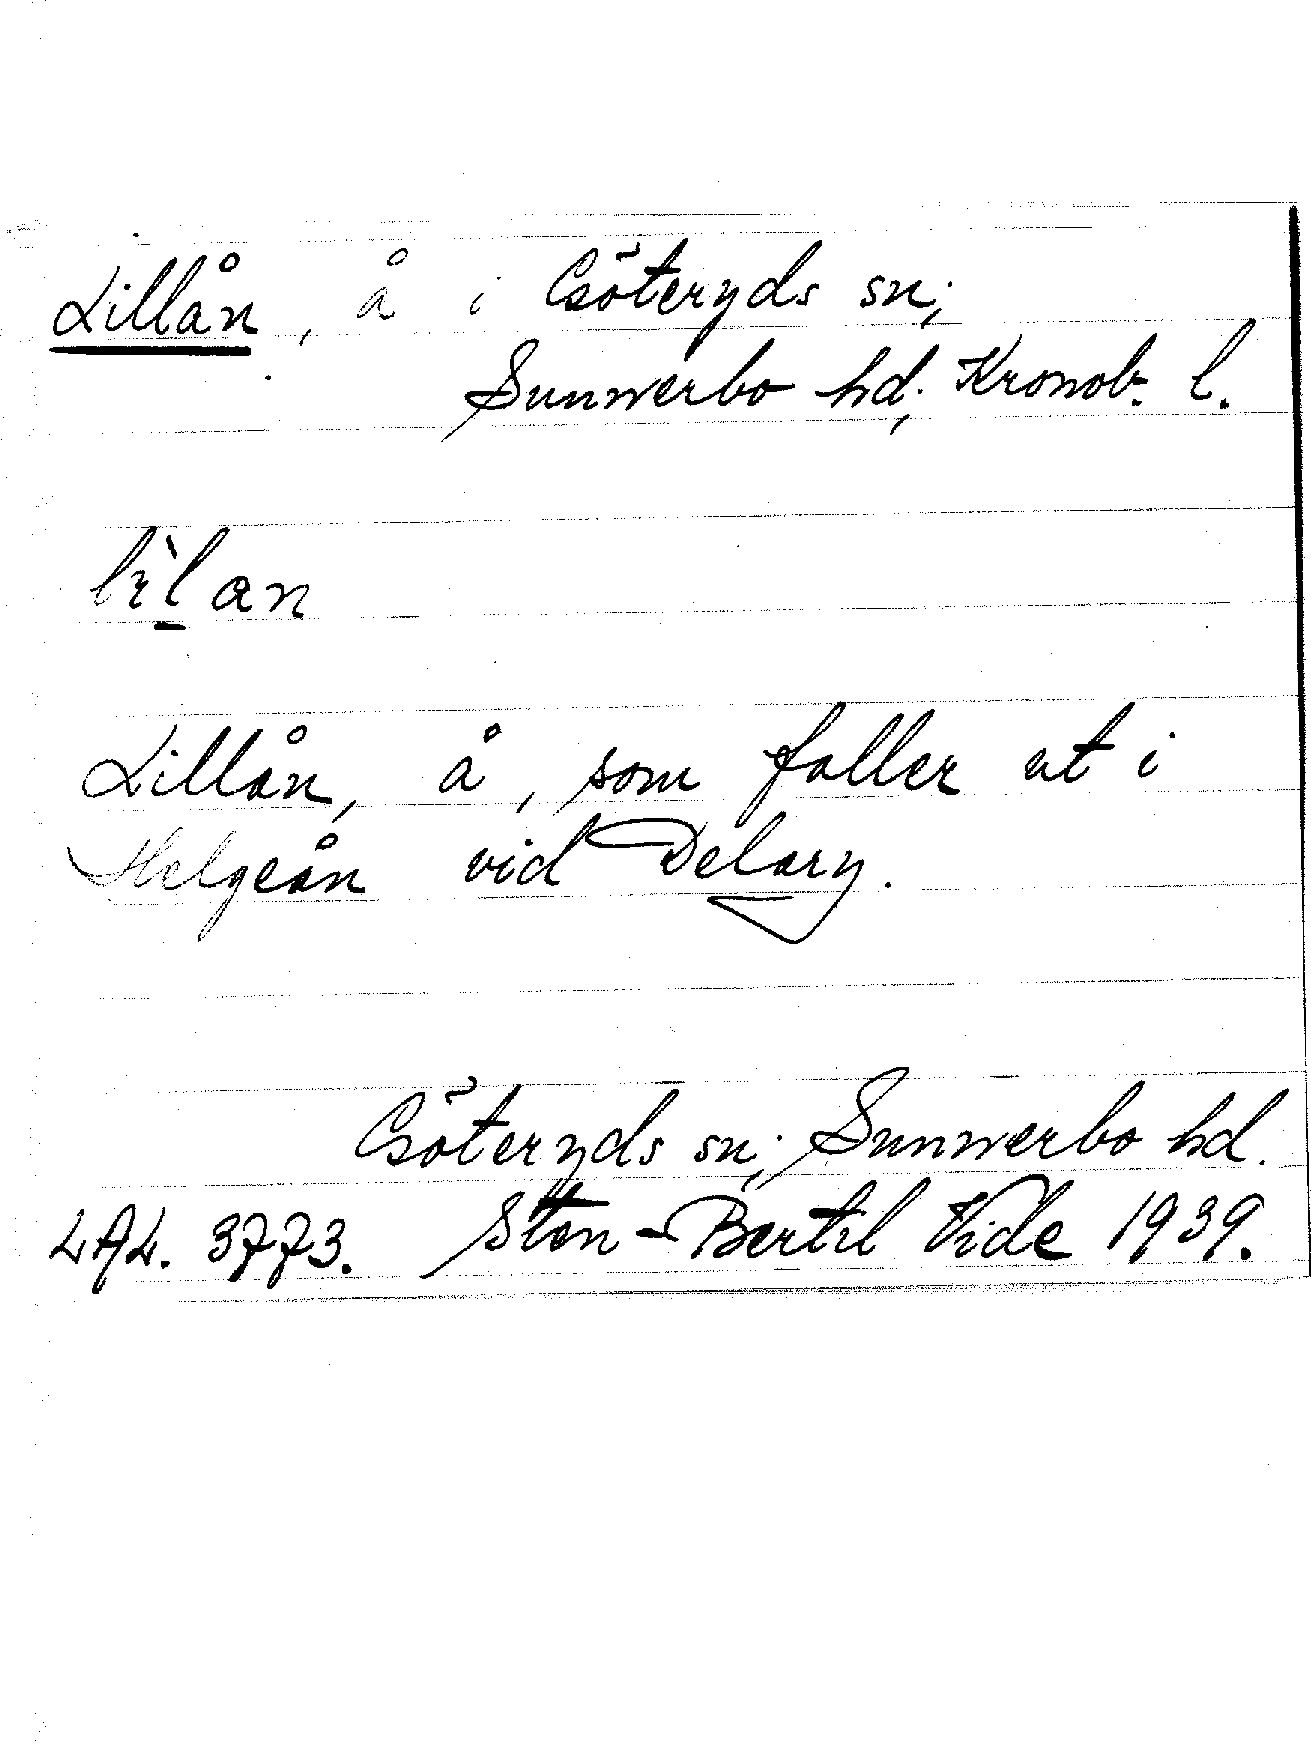 Lillån, å i Göteryds sn;
Sunnerbo hd; Kronob. l.
Lillån, å, som faller ut i
Helgeån vid Delary.
Göteryds sn; Sunnerbo hd.
LAL. 3773. Sten-Bertil Vide 1939.